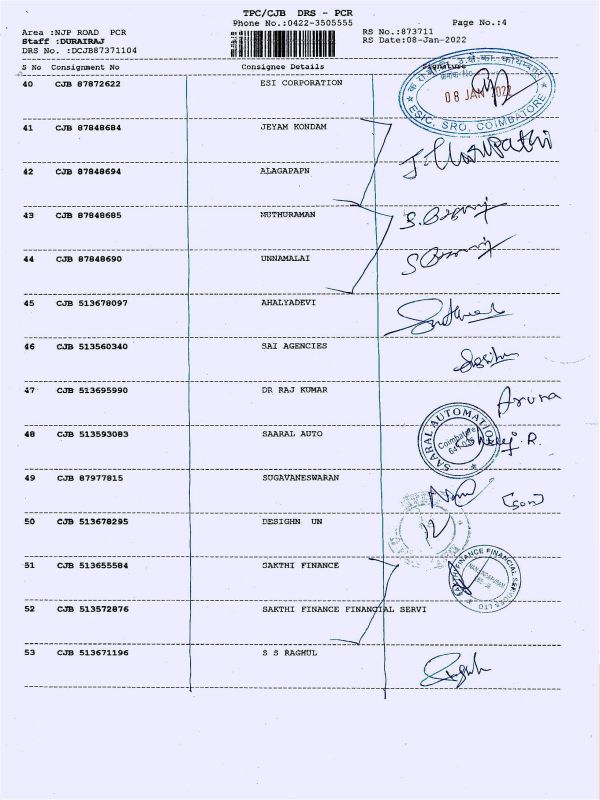 TPC/CJB DRS - PCR
Phone No.:0422-3505555 Page No.:4
Area :NJP ROAD PCR RS No.:873711
Staff :DURAIRAJ RS Date:08-Jan-2022
DRS No. :DCJB87371104
S No Consignment No Consignee Details Signature
40 CJB 87872622 ESI CORPORATION
08 JAN 2022
ESIC, SRO, COIMBATORE
41 CJB 87848684 JEYAM KONDAM
42 CJB 87848694 ALAGAPAPN
43 CJB 87848685 MUTHURAMAN
44 CJB 87848690 UNNAMALAI
45 CJB 513678097 AHALYADEVI
46 CJB 513560340 SAI AGENCIES
47 CJB 513695990 DR RAJ KUMAR Aruna
48 CJB 513593083 SAARAL AUTO
SAARAL AUTOMATION
Coimbatore
49 CJB 87977815 SUGAVANESWARAN [Son]
50 CJB 513678295 DESIGHN UN
51 CJB 513655584 SAKTHI FINANCE
52 CJB 513572876 SAKTHI FINANCE FINANCIAL SERVI
53 CJB 513671196 S S RAGHUL